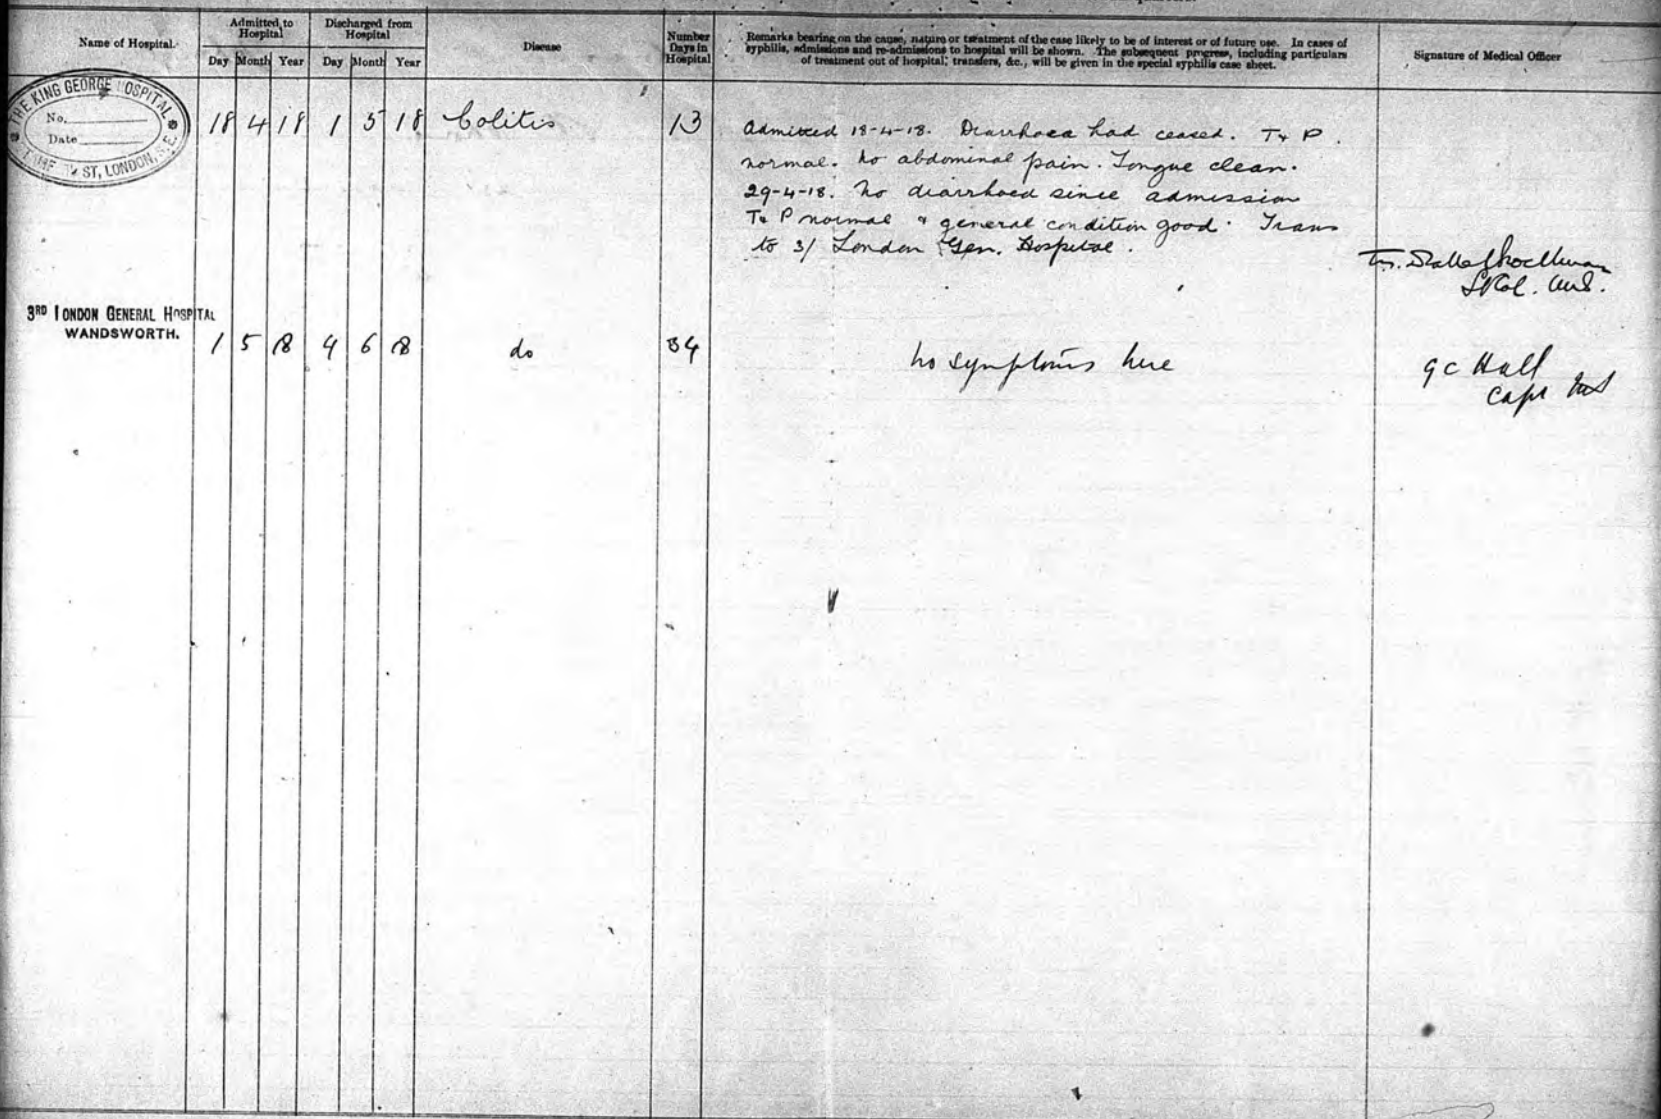 Name of Hospital.
Admitted to Hospital
Discharged from Hospital
Disease
Number Days in Hospital
Remarks bearing on the cause, nature or treatment of the case likely to be of interest or of future use. In cases of
syphilis, admissions and re-admissions to hospital will be shown. The subsequent progress, including particulars
of treatment out of hospital, transfers, &c., will be given in the special syphilis case sheet.
Signature of Medical Officer
Day Month Year Day Month Year
THE KING GEORGE HOSPITAL
No.
Date
ST, LONDON, S.E.
18 4 18 1 5 18 Colitis 13
Admitted 18-4-18. Diarrhoea had ceased. T & P.
normal. No abdominal pain. Tongue clean.
29-4-18. No diarrhoea since admission
T & P normal & general condition good. Trans
to 3/ London Gen. Hospital.
3RD LONDON GENERAL HOSPITAL
WANDSWORTH.
1 5 18 4 6 18 do 34 No symptoms here
G C Hall
Capt